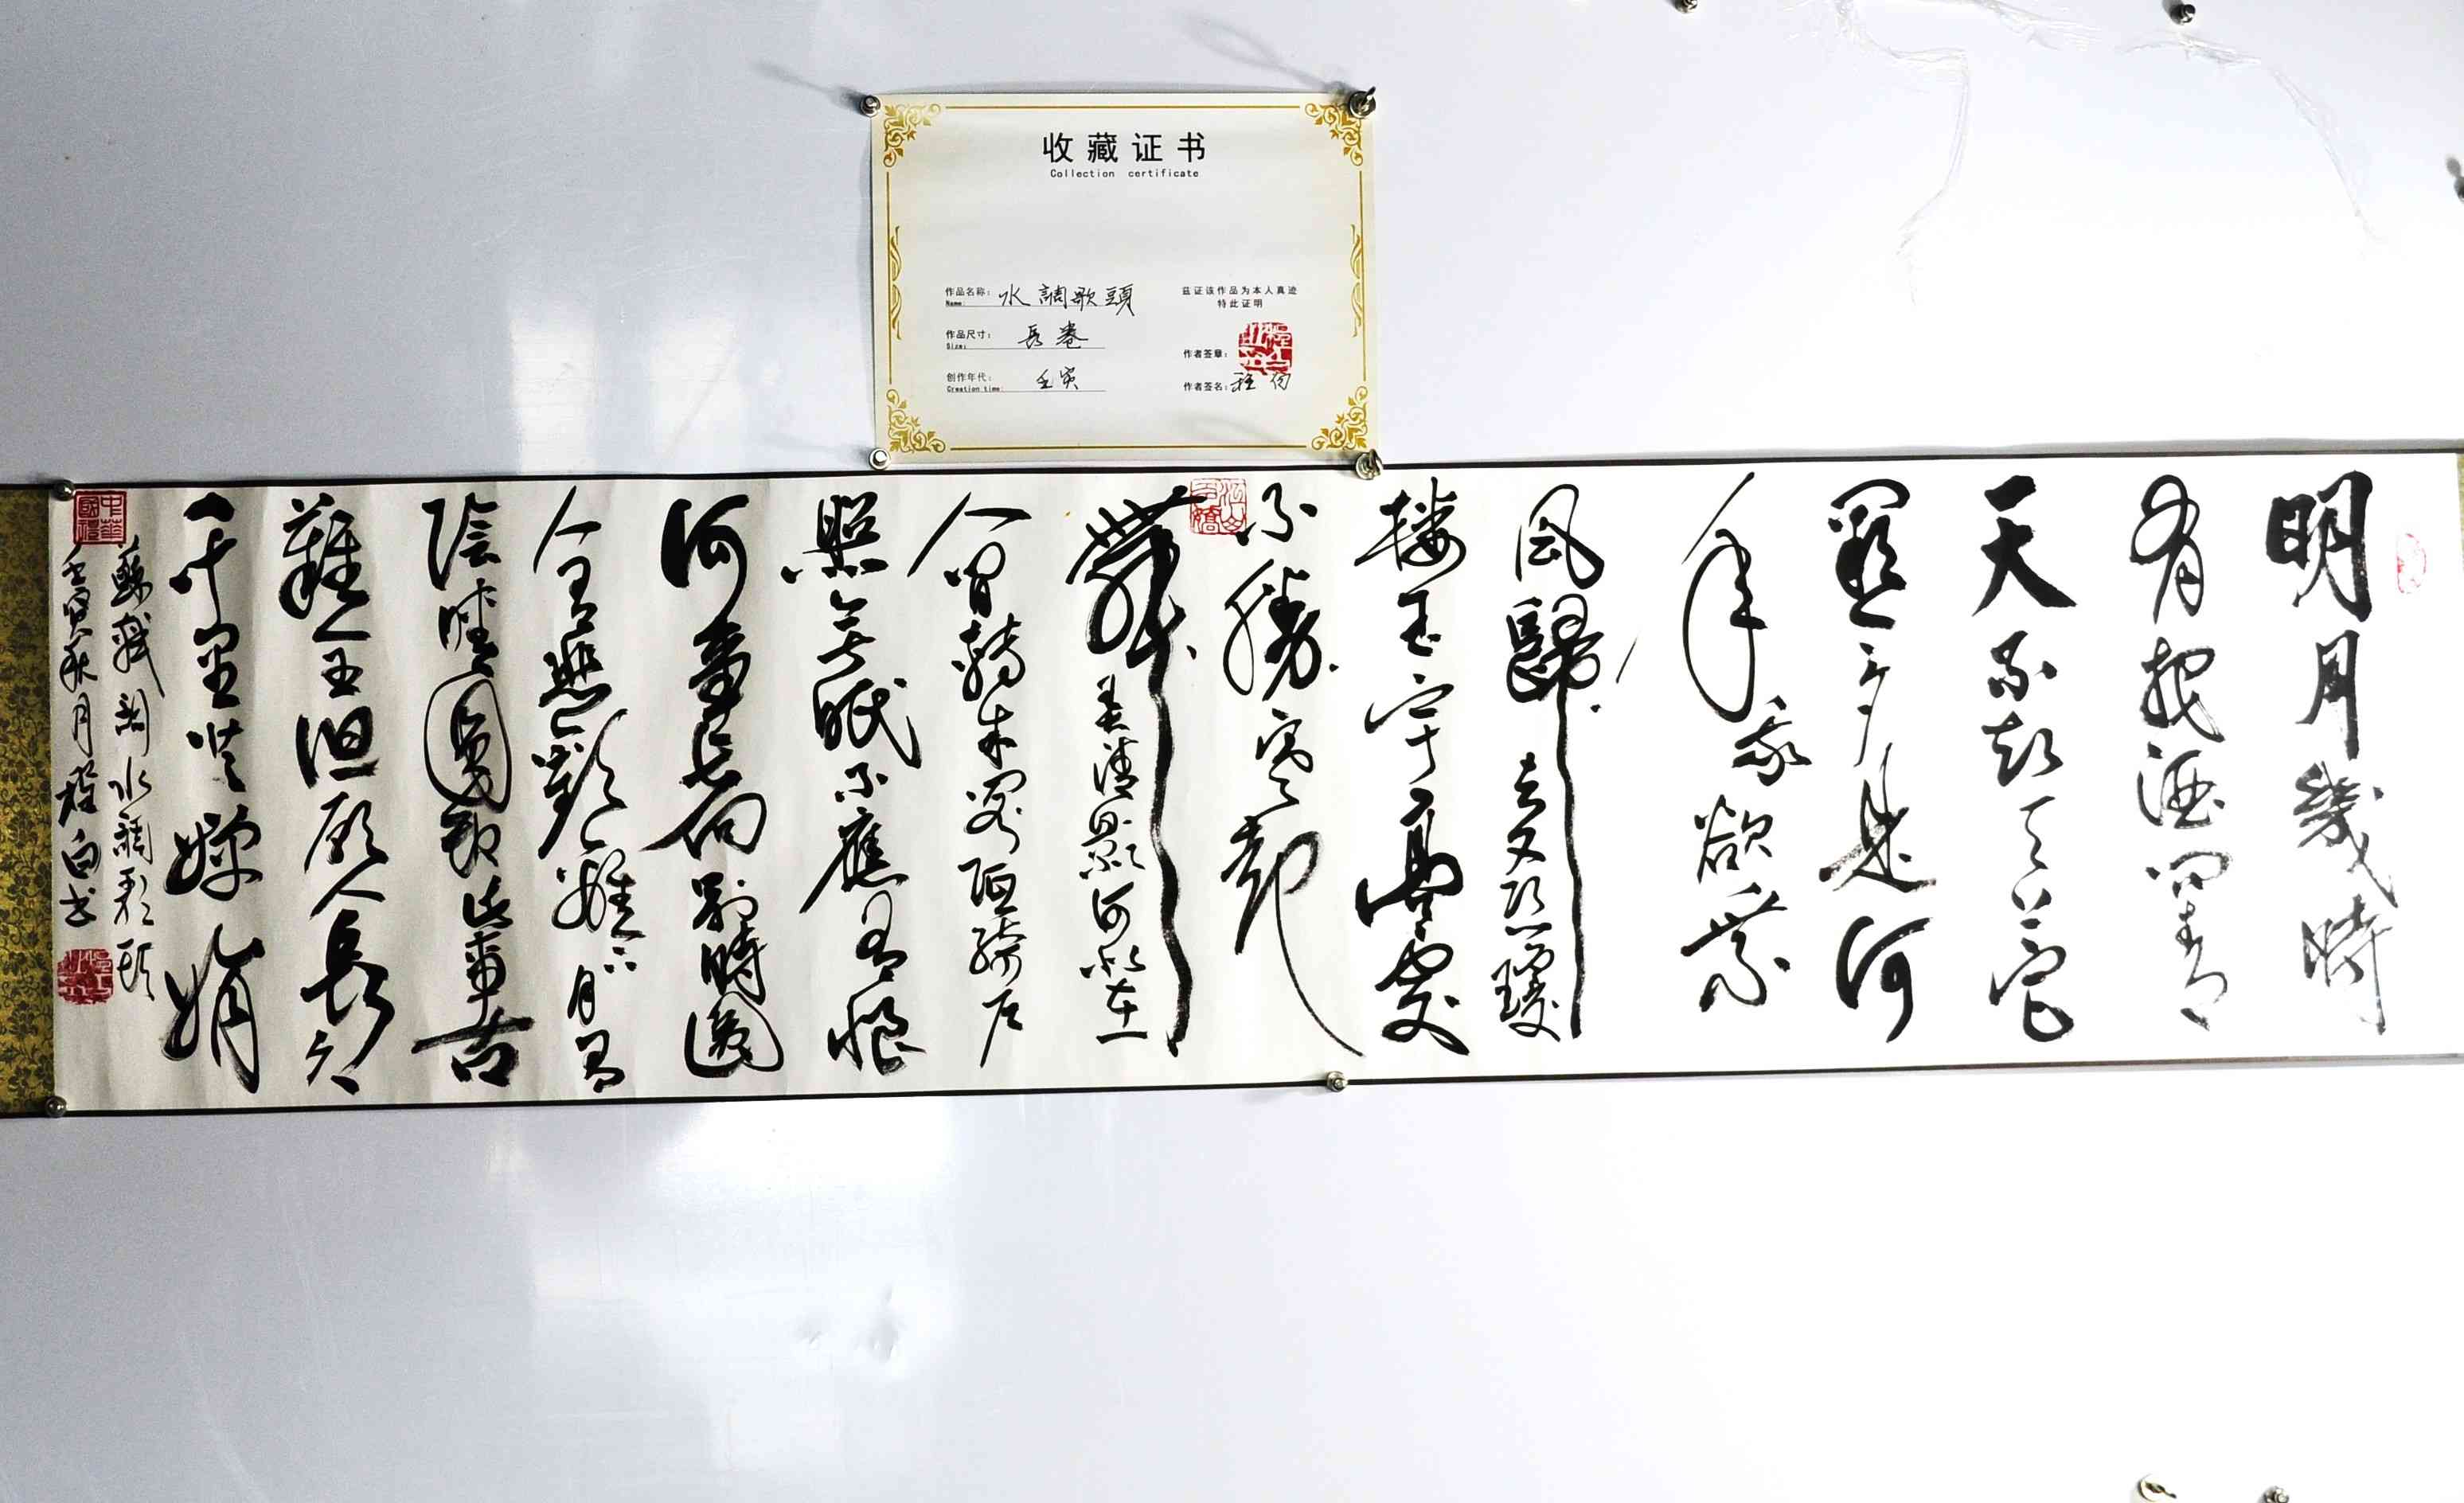 收藏证书
Collection certificate
作品名称：水調歌頭
Name:
作品尺寸：長卷
Size:
创作年代：壬寅
Creation time:
兹证该作品为本人真迹
特此证明
作者签章：
作者签名：程
明月幾時
有把酒問青
天不知天上宫
闕今夕是何
年我欲乘
風歸去又恐瓊
樓玉宇高處
不勝寒起
舞弄清影何似在
人間轉朱閣低綺户
照無眠不應有恨
何事長向别時圓
人有悲歡離合月有
陰晴圓缺此事古
難全但願人長久
千里共嬋娟
蘇軾詞水調歌頭
壬寅秋月程白书
中華國禮
江山多嬌